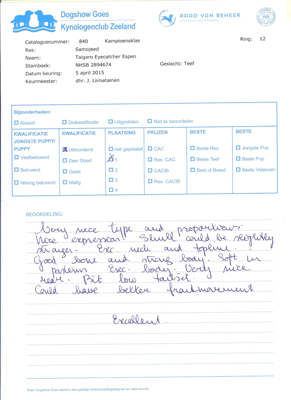 Dogshow Goes
Kynologenclub Zeeland
RAAD VAN BEHEER
Catalogusnummer: 840 Kampioensklas Ring: 12
Ras: Samojeed
Naam: Taigaro Eyecatcher Espen Geslacht: Teef
Stamboek: NHSB 2894674
Datum keuring: 5 april 2015
Keurmeester: dhr. J. Liimatainen
Bijzonderheden:
Absent Diskwalificatie Uitgesloten Niet te beoordelen
KWALIFICATIE JONGSTE PUPPY/ PUPPY
Veelbelovend
Belovend
Weinig belovend
KWALIFICATIE
Uitmuntend
Zeer Goed
Goed
Matig
PLAATSING
niet geplaatst
1
2
3
4
PRIJZEN
CAC
Res. CAC
CACIB
Res. CACIB
BESTE
Beste Reu
Beste Teef
Best of Breed
BESTE
Jongste Pup
Beste Pup
Beste Veteraan
BEOORDELING:
Very nice type and proportions
Nice expression. Skull could be slightly
stronger. Exc. neck and topline.
Good bone and strong body. Soft in
pasterns. Exc. body. Very nice
rear. Bit low tailset
Could have better frontmovement
Excellent